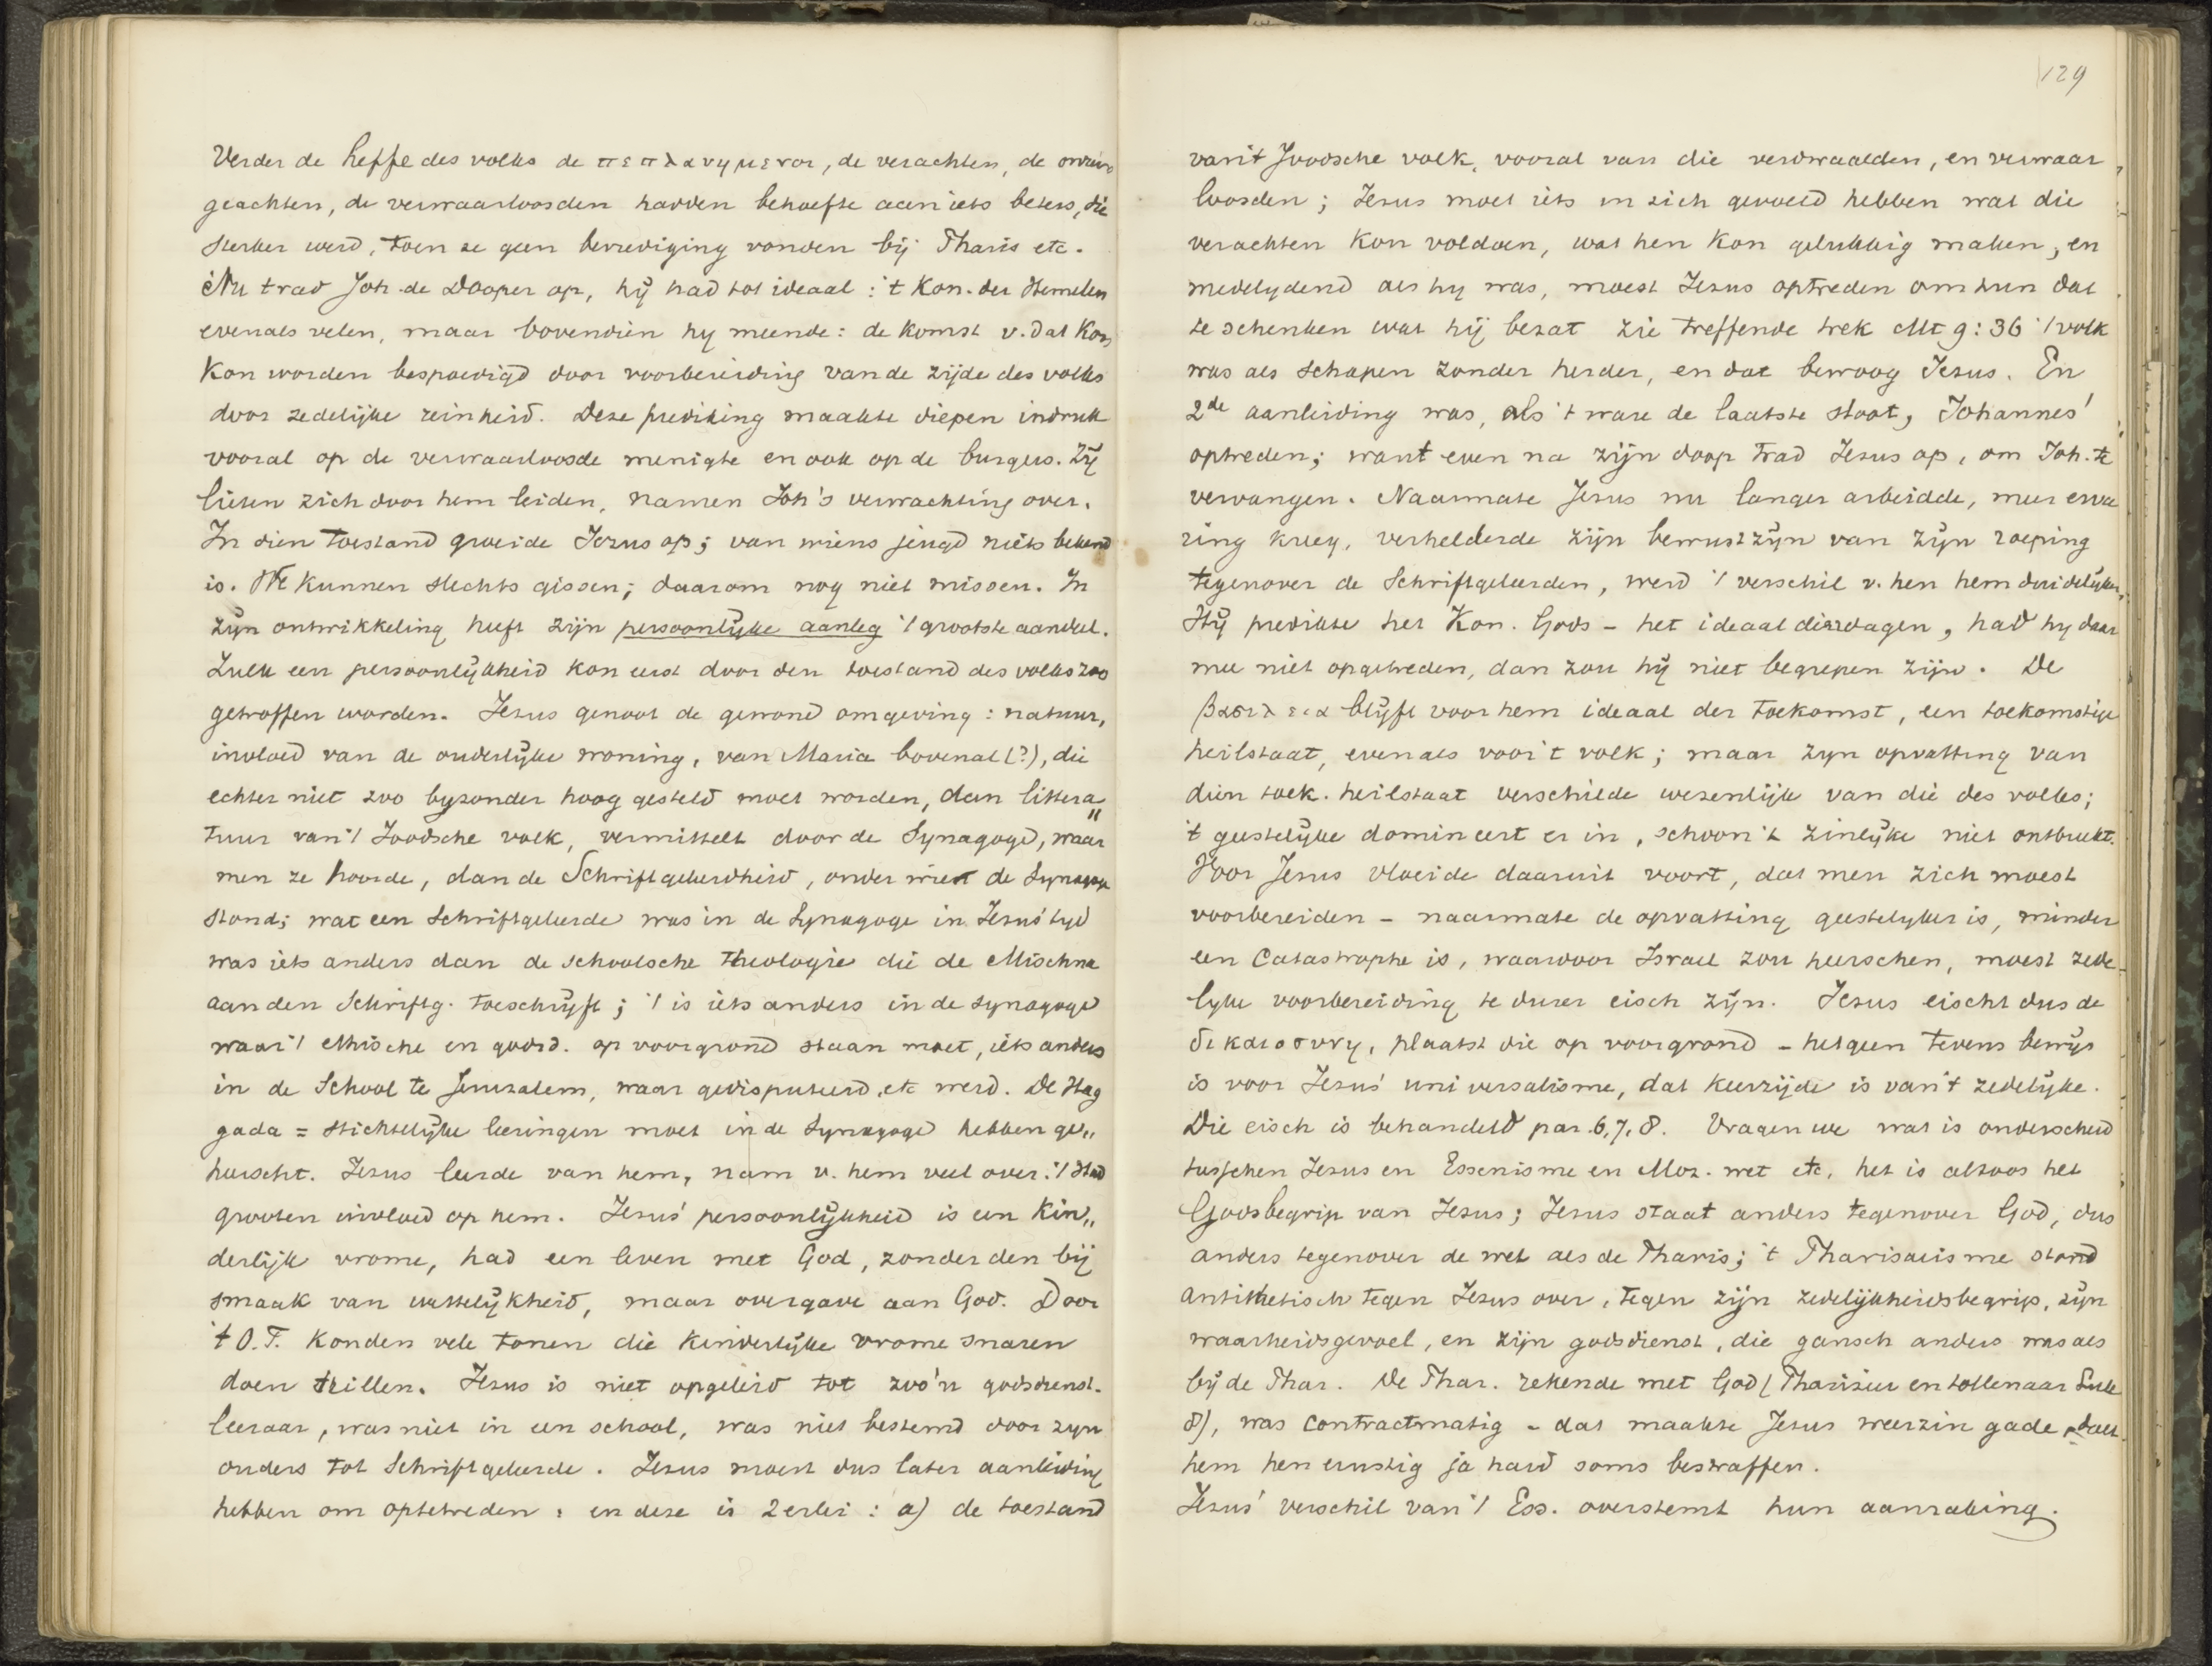 Verder de heffe des volks de πεπλανημενοι, de verachten, de
geachten, de verwaarloosden hadden behoefte aan iets beters, die
sterker werd, toen ze geen bevrediging vonden bij Pharis etc.
Nu trad Joh. de Dooper op, hij had tot ideaal: 't Kon. der Hemelen
evenals velen, maar bovendien hy meende: de komst v. dat Kon
kon worden bespoedigd door voorbereiding van de zijde des volks
door zedelijke reinheid. Deze prediking maakte diepen indruk
vooral op de verwaarloosde menigte en ook op de burgers. Zij
lieten zich door hem leiden, namen Joh's verwachting over.
In dien toestand groeide Jezus op; van wiens jeugd niets bekend
is. We kunnen slechts gissen; daarom nog niet missen. In
zijn ontwikkeling heeft zijn persoonlijke aanleg 't grootste aandeel.
Zulk een persoonlijkheid kon eerst door den toestand des volks zoo
getroffen worden. Jezus genoot de gewone omgeving: natuur,
invloed van de ouderlijke woning, van Maria bovenal (?), die
echter niet zoo byzonder hoog gesteld moet worden, dan littera„
tuur van 't Joodsche volk, vermittelt door de Synagoge, waar
men ze hoorde, dan de Schriftgeleerdheid, onder wien de Synagoge
stond; wat een Schriftgeleerde was in de Synagoge in Jezus' tyd
was iets anders dan de schoolsche theologie die de Mischna
aan den Schriftg. toeschrijft; 't is iets anders in de synagoge
waar 't ethische en godsd. op voorgrond staan moet, iets anders
in de School te Jeruzalem, waar gedisputeerd, etc werd. De Hag
gada = stichtelijke leeringen moet in de Synagoge hebben ge„
heerscht. Jezus leerde van hem, nam v. hem veel over: 't Had
grooten invloed op hem. Jezus' persoonlijkheid is een kin„
derlijk vrome, had een leven met God, zonder den bij
smaak van wettelijkheid, maar overgave aan God. Door
't O.T. konden vele tonen die kinderlijke vrome snaren
doen trillen. Jezus is niet opgeleid tot zoo'n godsdienst.
leeraar, was niet in een school, was niet bestemd door zyn
ouders tot Schriftgeleerde. Jezus moest dus later aanleiding
hebben om optetreden: en deze is 2erlei: a) de toestand
129
van 't Joodsche volk, vooral van die verdwaalden, en verwaar
loosden; Jezus moet iets in zich gevoeld hebben wat die
verachten kon voldoen, wat hen kon gelukkig maken, en
medelydend als hy was, moest Jezus optreden om hun dat
te schenken wat hij bezat zie treffende trek Mt 9:36 't volk
was als schapen zonder herder, en dat bewoog Jezus. En
2de aanleiding was, als 't ware de laatste stoot, Johannes'
optreden; want even na zijn doop trad Jezus op, om Joh. te
vervangen. Naarmate Jezus nu langer arbeidde, meer erva
ring kreeg, verhelderde zijn bewustzijn van zijn roeping
tegenover de Schriftgeleerden, werd 't verschil v. hen hem duidelijker,
Hij predikte het Kon. Gods – het ideaal dier dagen, had hy daar
mee niet opgetreden, dan zou hij niet begrepen zijn. De
βασιλεια blijft voor hem ideaal der toekomst, een toekomstige
heilstaat, evenals voor 't volk; maar zyn opvatting van
dien toek. heilstaat verschilde wezenlijk van die des volks;
't geestelijke domineert er in, schoon 't zinlijke niet ontbreekt.
Voor Jezus vloeide daaruit voort, dat men zich moest
voorbereiden – naarmate de opvatting geestelyker is, minder
een Catastrophe is, waardoor Israel zou heerschen, moest zede-
lyke voorbereiding te durer eisch zijn. Jezus eischt dus de
δικαιοσυνη, plaatst die op voorgrond – hetgeen tevens bewijs
is voor Jezus' universalisme, dat keerzijde is van 't zedelijke.
Die eisch is behandeld par. 6, 7, 8. Vragen we wat is onderscheid
tusschen Jezus en Essenisme en Moz. wet etc, het is altoos het
Godsbegrip van Jezus; Jezus staat anders tegenover God, dus
anders tegenover de wet als de Pharis; 't Pharisaisme stond
antithetisch tegen Jezus over, tegen zijn zedelijkheidsbegrip, zijn
waarheidsgevoel, en zijn godsdienst, die gansch anders was als
bij de Phar. De Phar. rekende met God (Pharizeer en tollenaar Luk
8), was contractmatig – dat maakte Jezus weerzin gade, deed
hem hen ernstig ja hard soms bestraffen.
Jezus' verschil van 't Ess. overstemt hun aanraking.